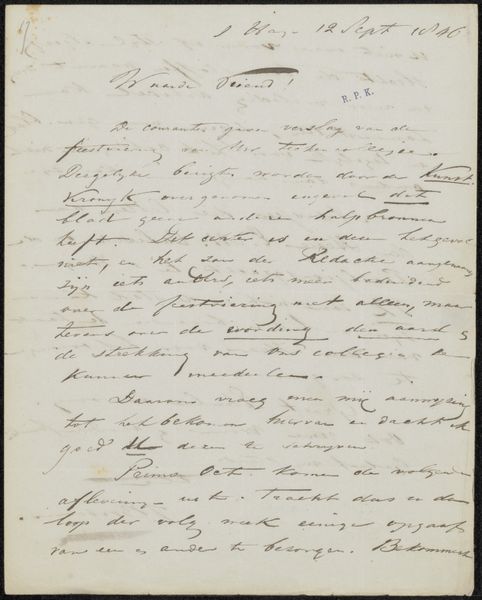 s Hag. 12 Sept 1846
Waarde Vriend!
R. P. K.
De couranten geven verslag van de
feestviering van Uw teeken collegie.
Dergelijke berigten worden door de Kunst
Kronyk overgenomen ingeval dat
blad geene andere hulpbronnen
heeft. Dit echter is in deze het geval
niet, en het zou der Redactie aangenaam
zijn iets anders, iets meer beduidend
over de feestviering niet alleen, maar
tevens over de wording den aard &
de strekking van Uw collegie te
kunnen meedeelen.
Daarom vroeg men mij aanwijzing
tot het bekomen hiervan en dacht ik
goed U deze te schrijven.
Primo Oct. komt de volgende
aflevering uit. Tracht dus in den
loop der volg. week eenige opgaaf
van een en ander te bezorgen. Bekommer